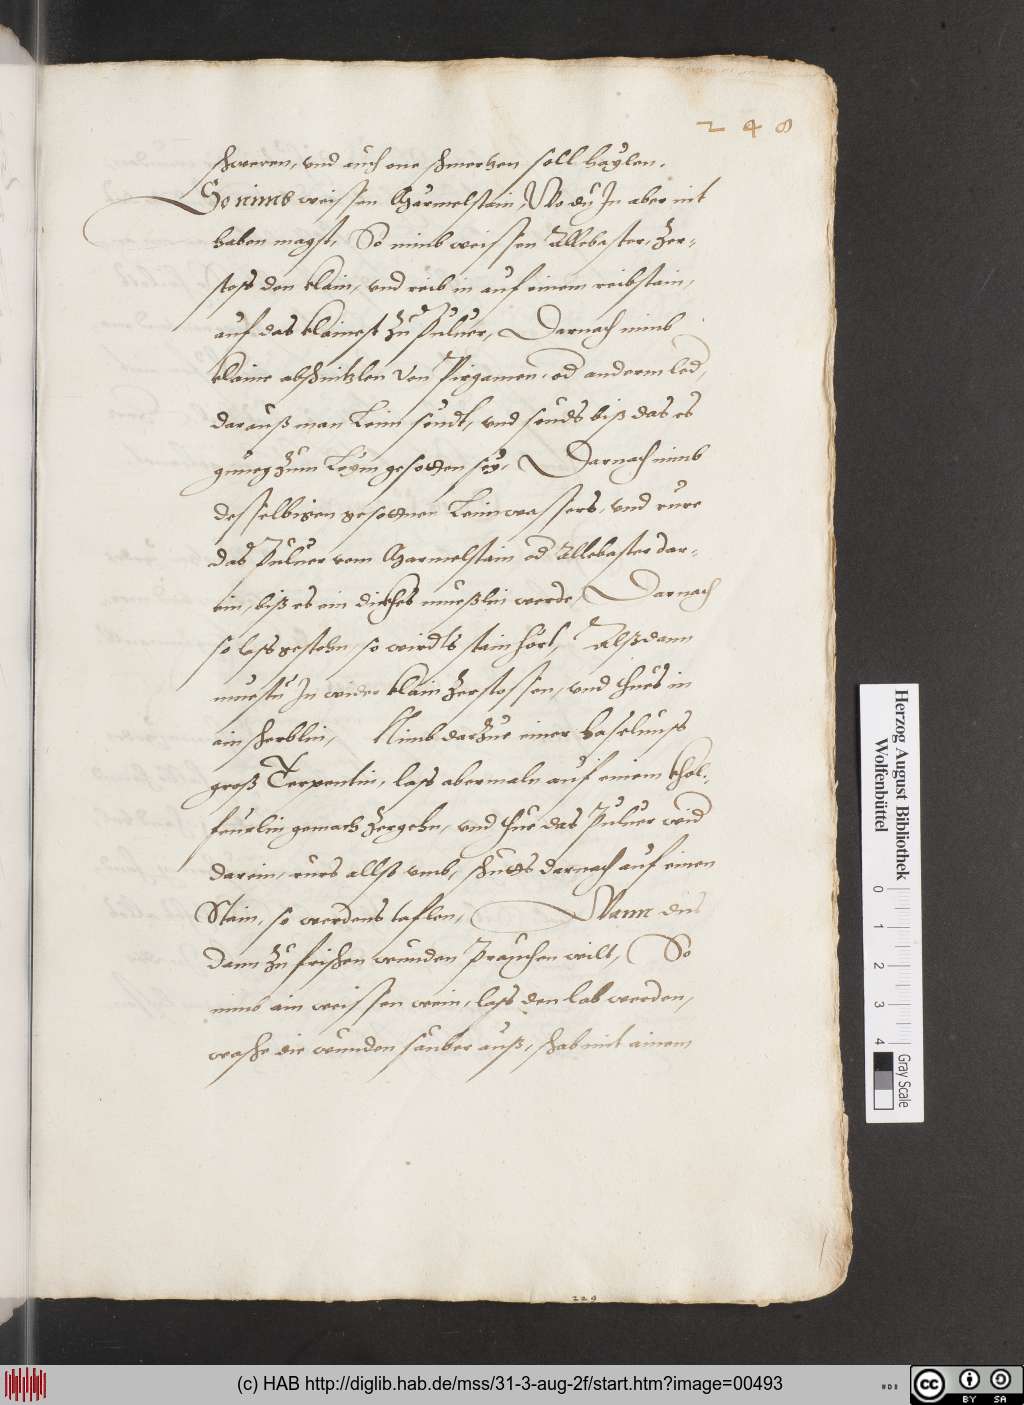 248
schweren, vnd auch one schmertzen soll haylen.
So nimb weissen Marmelstain, Wo du In aber nit
haben magst, So nimb weissen Allebaster, Zer-
stoss den klain, vnd reib in auf einem reibstain,
auf das klainest zu Puluer, Darnach nimb
klaine abschnitzlen von Pirgamen, od anderm led,
darauß man Leim seudt, vnd seuds biß das es
gnueg zum Leym gesotten sey, Darnach nimb
desselbigen gesottnen Leimwassers, vnd rure
das Puluer vom Marmelstain od Allebaster dar-
ein, biß es ein dickhes mueßlin werde, Darnach
so lass gestehn, so wirdts stainhört, Alßdann
muestu In wider klain Zerstossen, vnd thues in
ain scherblin, Nimb darzue einer haselnuss
groß Terpentin, lass abermaln auf einem khol-
feurlin gemach zergehn, vnd thue das Puluer wid
darein, rurs allso vmb, schutts darnach auf einen
Stain, so werdens taflen, Wann dus
dann zu frischen wunden prauchen wilt, So
nimb ain weissen wein, lass den lab werden,
wasche die wunden sauber auß, schab mit ainem
229
Herzog August Bibliothek
Wolfenbüttel
0 1 2 3 4
Gray Scale
(c) HAB http://diglib.hab.de/mss/31-3-aug-2f/start.htm?image=00493
cc BY SA